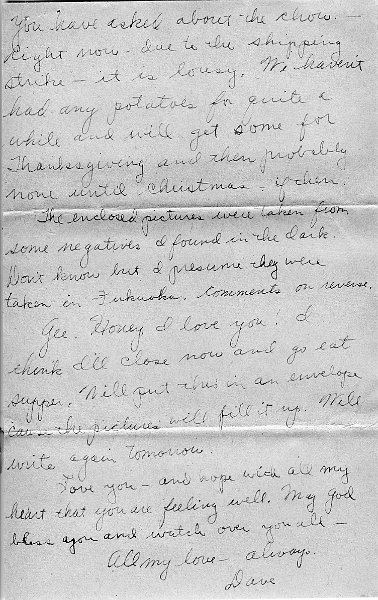 You have asked about the chow. —
Right now - due to the shipping
strike - it is lousy. We haven't
had any potatoes for quite a
while and will get some for
Thanksgiving and then probably
none until Christmas - if then.
The enclosed pictures were taken from
some negatives I found in the dark.
Don't know but I presume they were
taken in Fukuoka. Comments on reverse.
Gee. Honey I love you! I
think I'll close now and go eat
supper. Will put this in an envelope
cause the pictures will fill it up. Will
write again tomorrow.
Love you - and hope with all my
heart that you are feeling well. May God
bless you and watch over you all -
All my love - always.
Dave